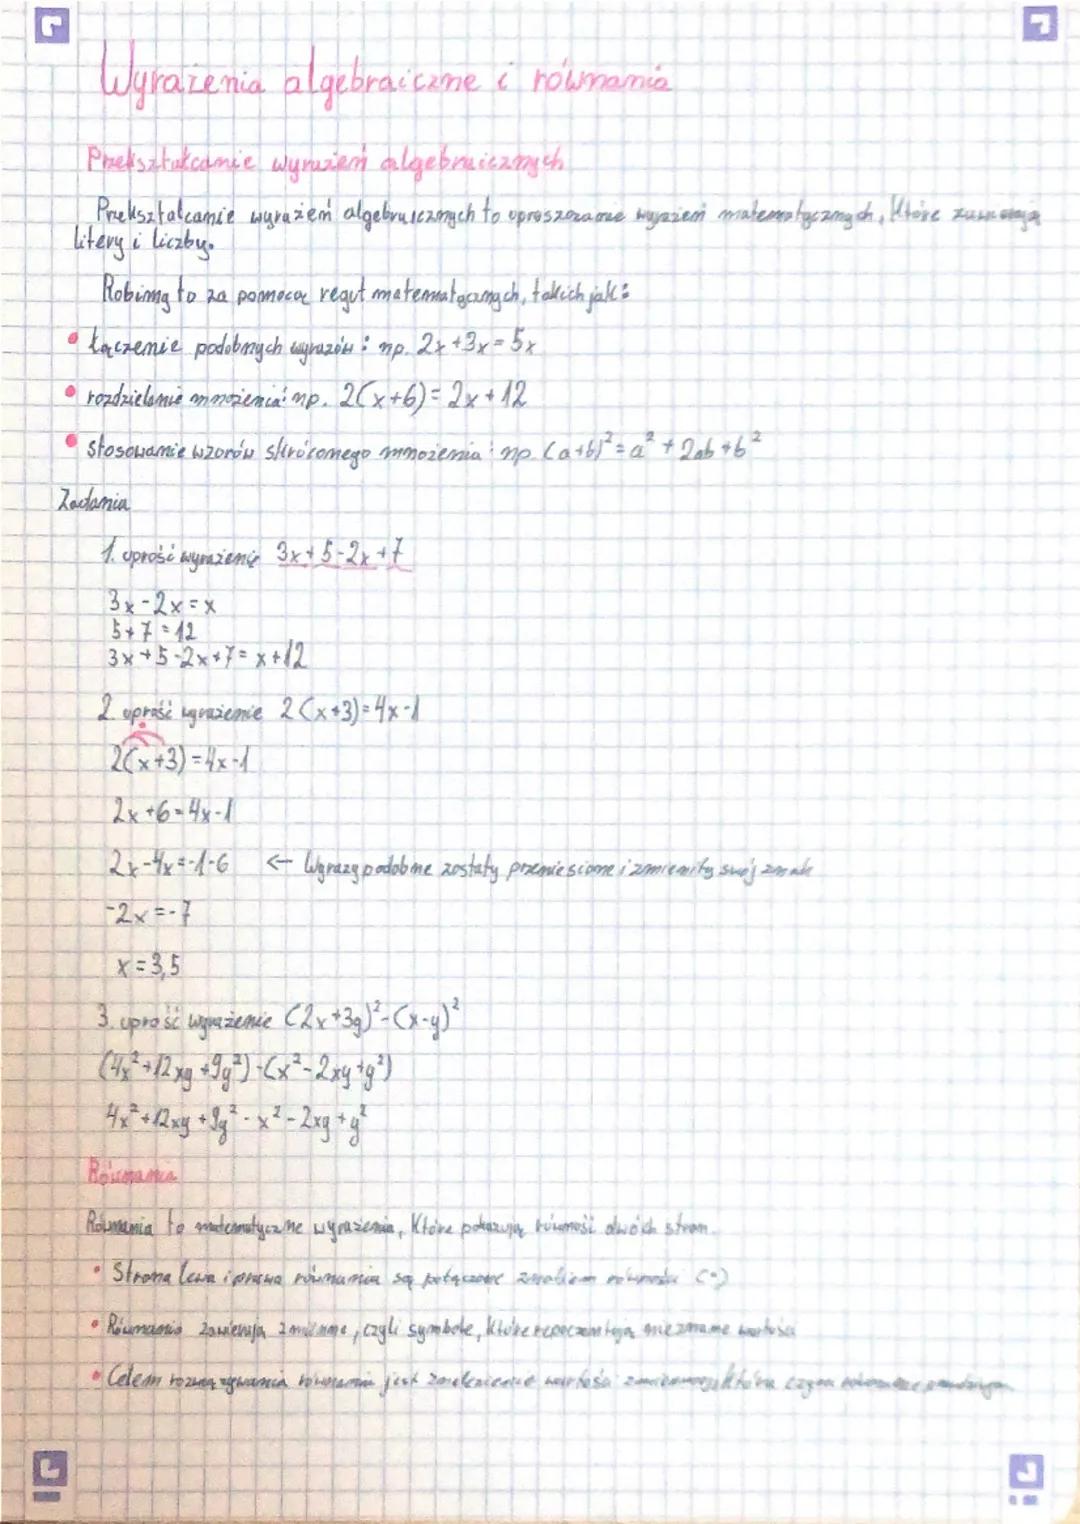 Wyrażenia algebraiczne i równania
Przekształcanie wyrażeń algebraicznych
Przekształcanie wyrażeń algebraicznych to upraszczanie wyrażeń matematycznych, które zawierają
litery i liczby.
Robimy to za pomocą reguł matematycznych, takich jak:
• Łączenie podobnych wyrazów: np. 2x+3x=5x
• rozdzielanie mnożenia: np. 2(x+6)=2x+12
• stosowanie wzorów skróconego mnożenia: np. (a+b)²=a²+2ab+b²
Zadania
1. uprość wyrażenie 3x+5-2x+7
3x-2x=x
5+7=12
3x+5-2x+7=x+12
2. uprość wyrażenie 2(x+3)=4x-1
2(x+3)=4x-1
2x+6=4x-1
2x-4x=-1-6 ← Wyrazy podobne zostały przeniesione i zmieniły swój znak
-2x=-7
x=3,5
3. uprość wyrażenie (2x+3y)²-(x-y)²
(4x²+12xy+9y²)-(x²-2xy+y²)
4x²+12xy+9y²-x²-2xy+y²
Równania
Równania to matematyczne wyrażenia, które pokazują równość dwóch stron.
• Strona lewa i prawa równania są połączone znakiem równości (=)
• Równania zawierają zmienne, czyli symbole, które reprezentują nieznane wartości
• Celem rozwiązywania równania jest znalezienie wartości zmiennej, która czyni